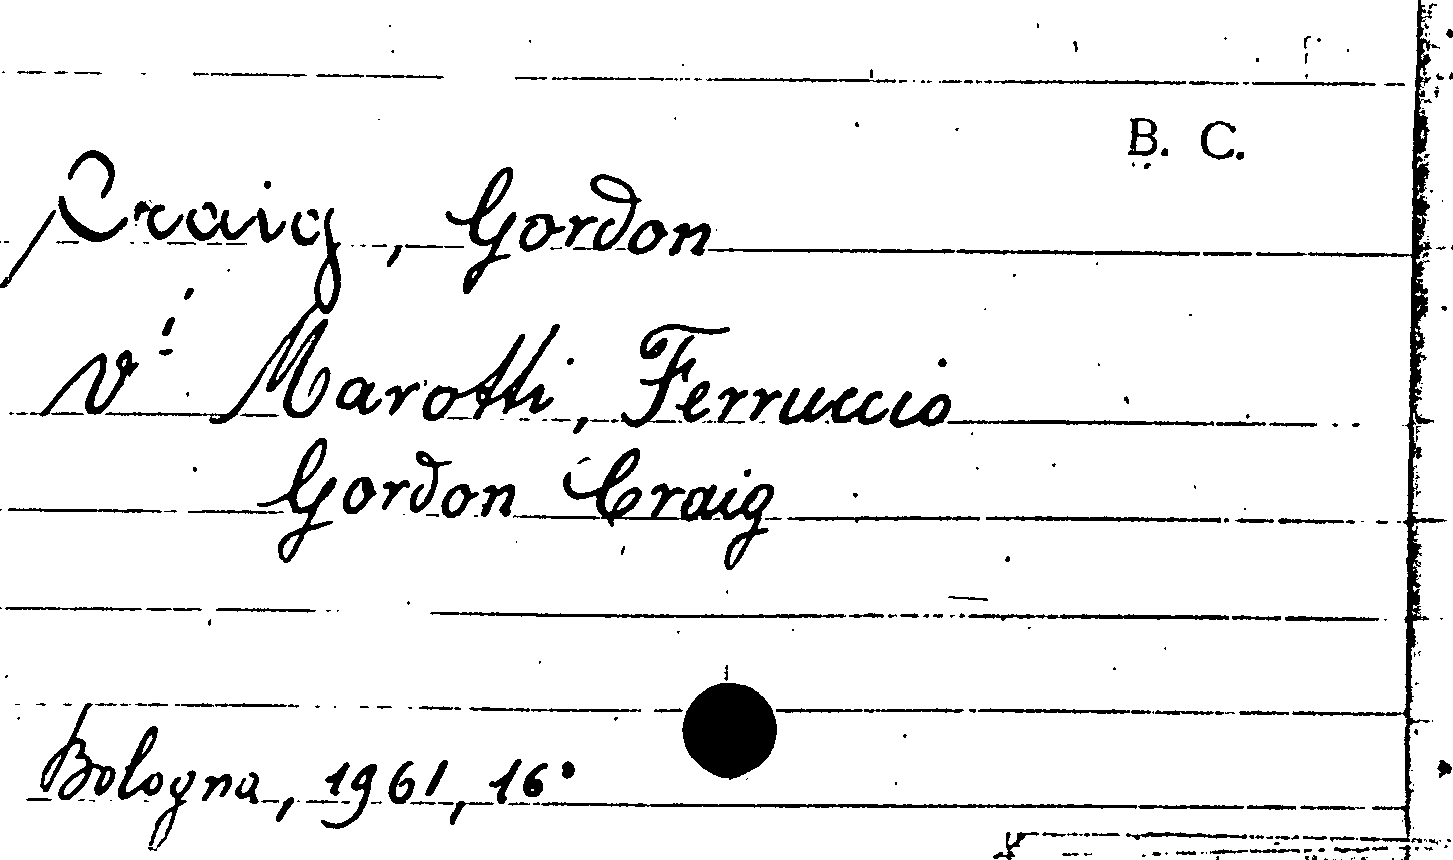 B. C.
Craig, Gordon
v! Marotti, Ferruccio
Gordon Craig
Bologna, 1961, 16°